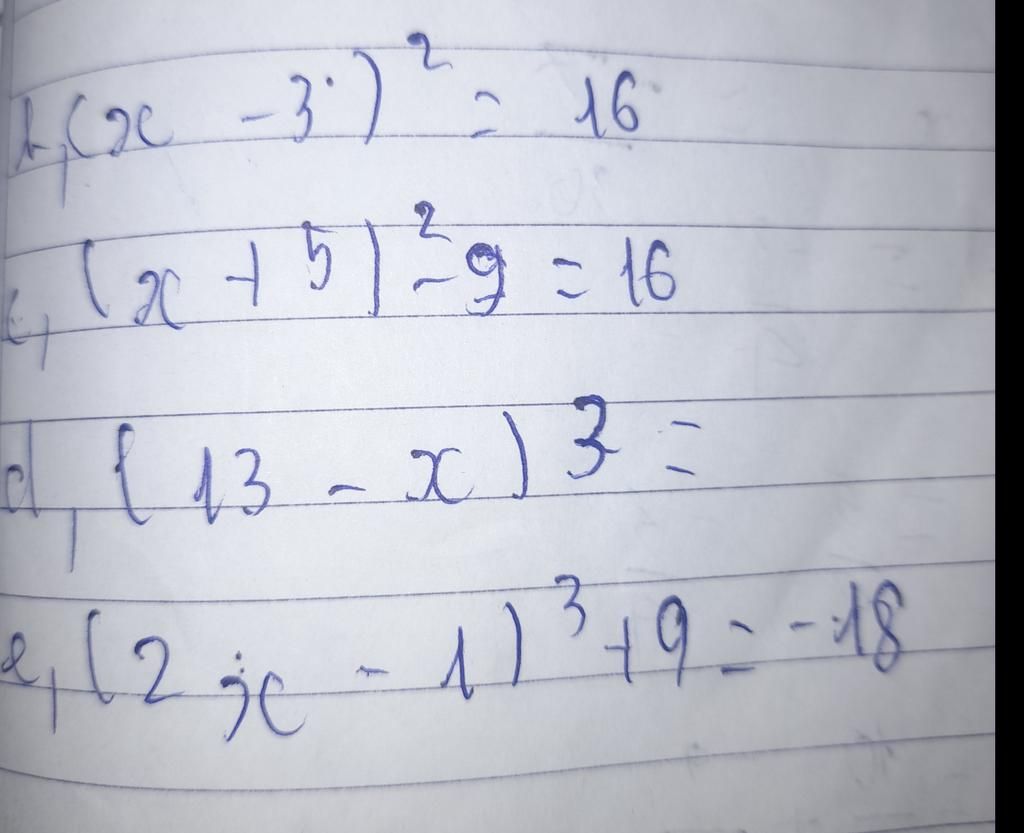 b, (x - 3)² = 16
c, (x + 5)² - 9 = 16
d, (13 - x)3 =
e, (2x - 1)³ + 9 = -18